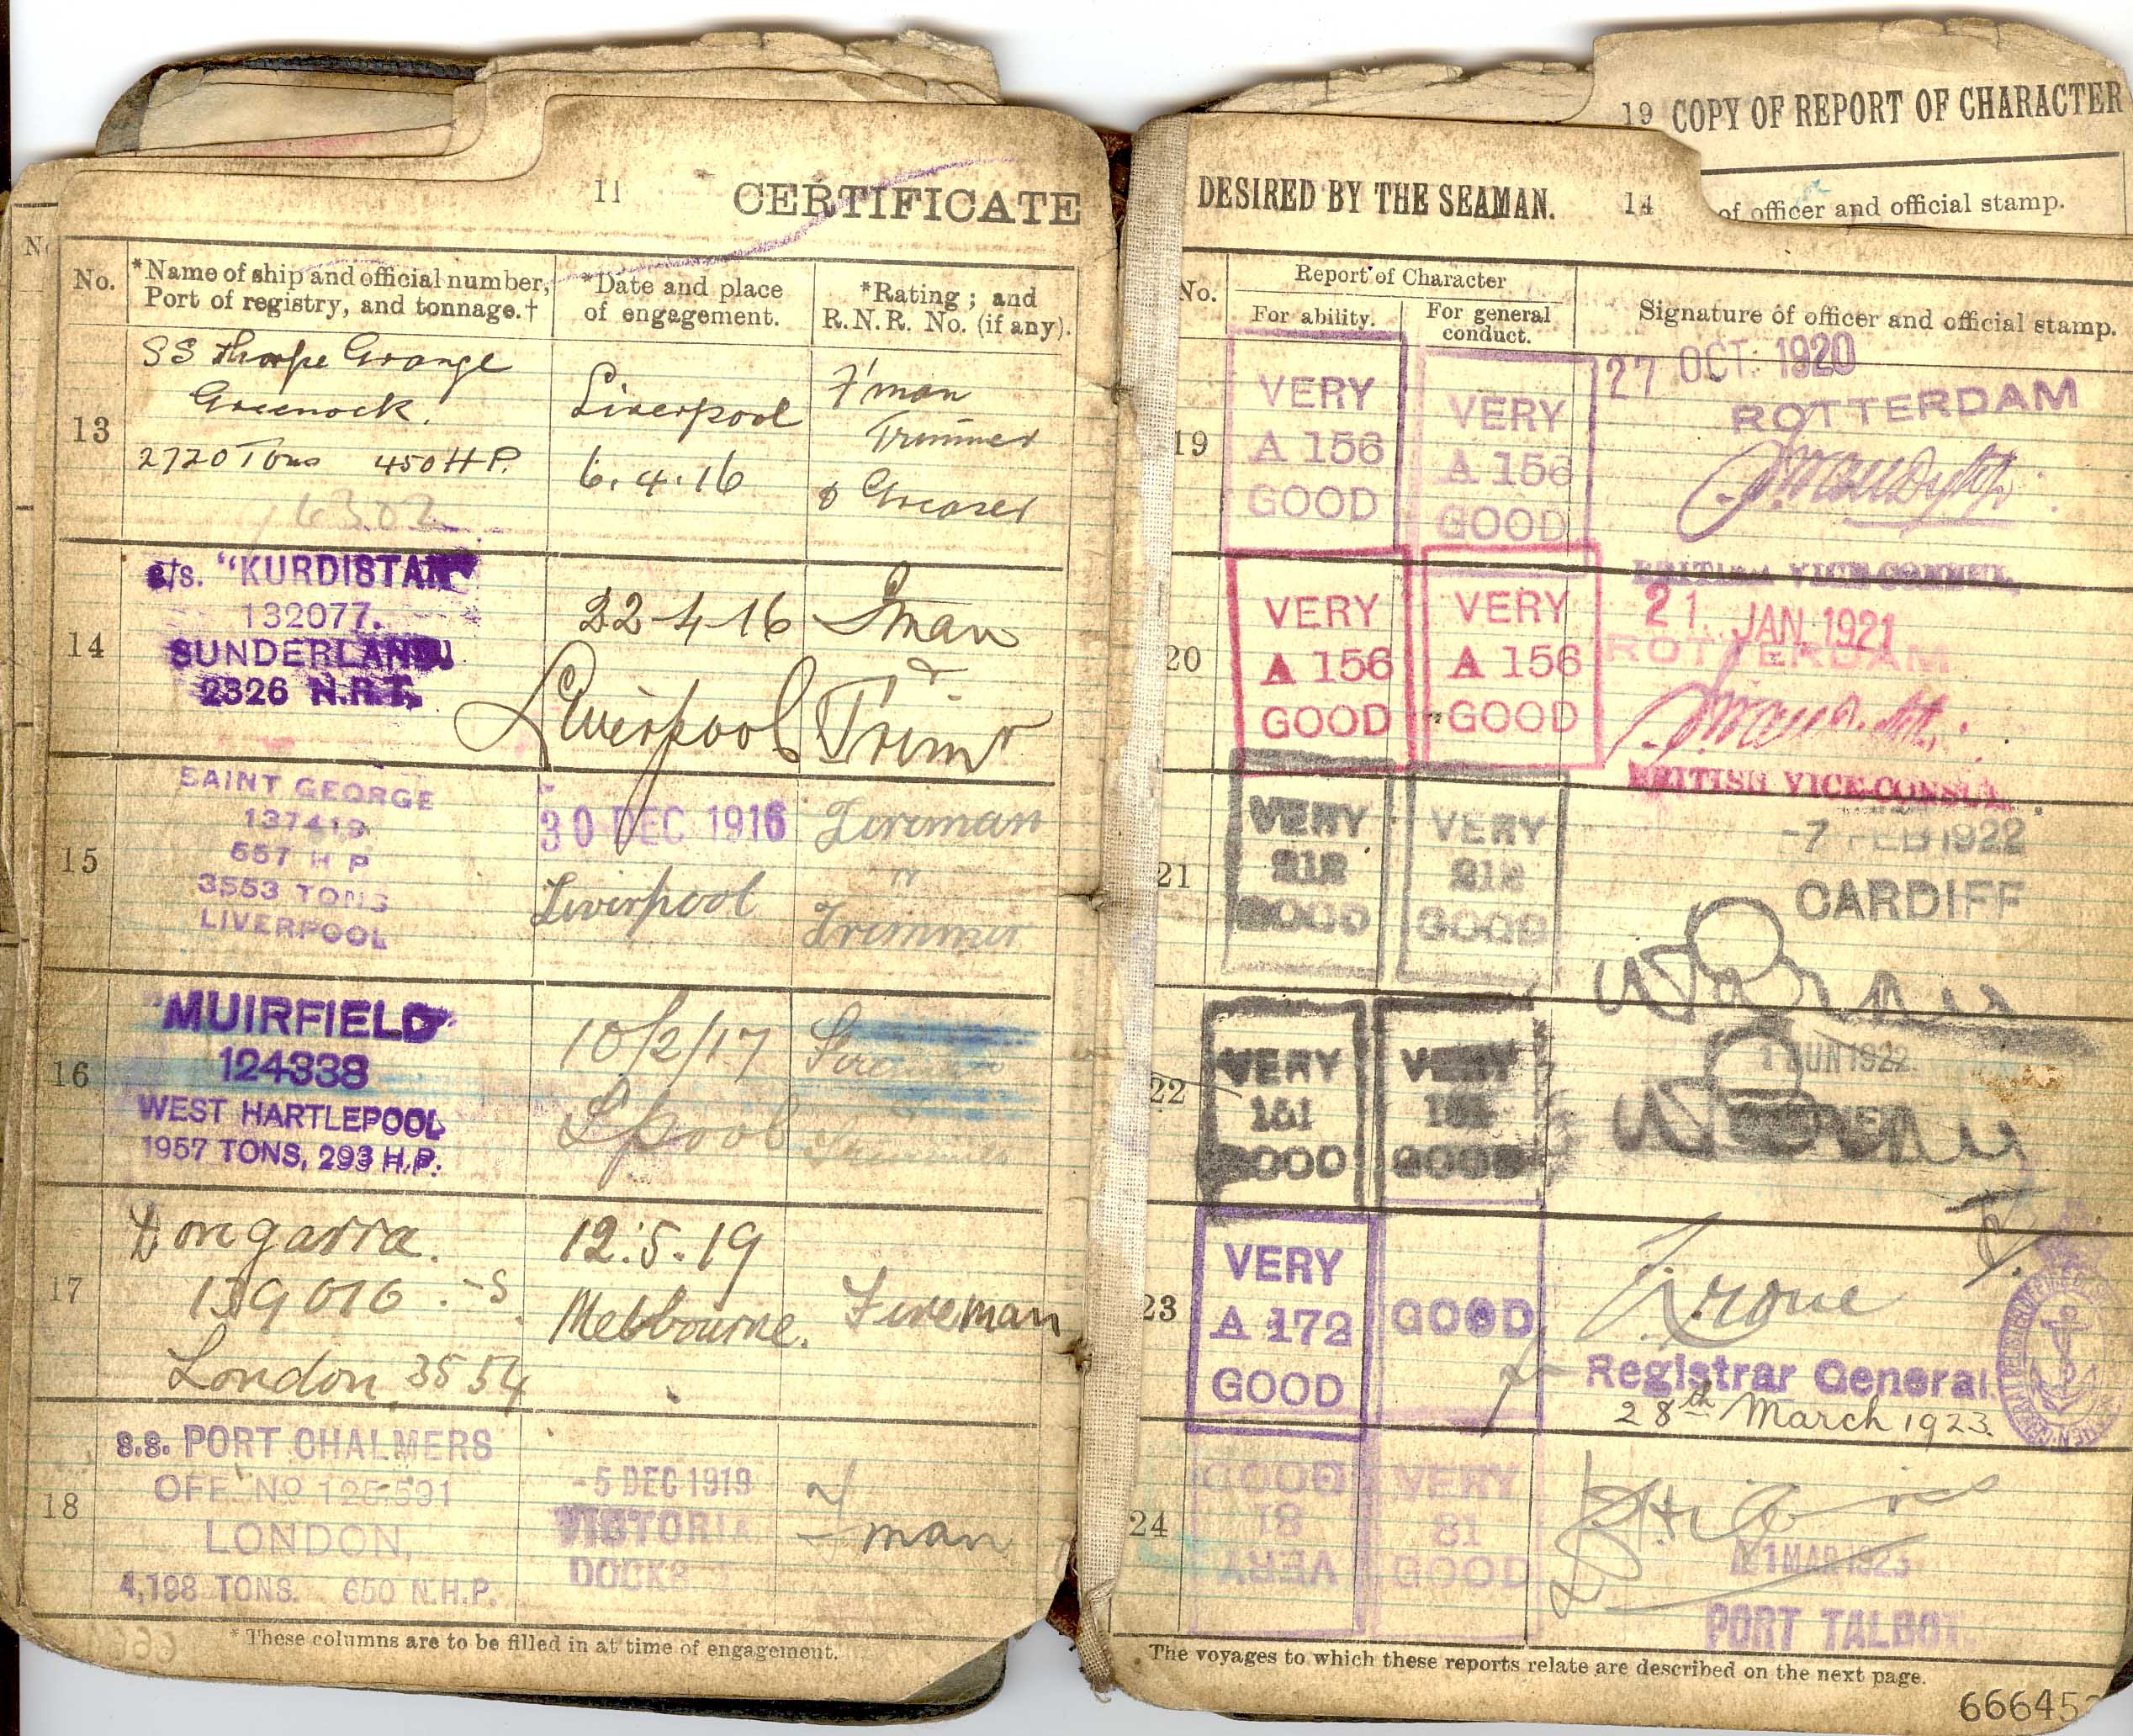 11 CERTIFICATE
No.
*Name of ship and official number,
Port of registry, and tonnage.†
*Date and place
of engagement.
*Rating; and
R.N.R. No. (if any).
13
SS Thorpe Grange
Greenock.
2720 Tons 450 H P.
Liverpool
6.4.16
F'man
Trimmer
& Greaser
14
s/s. "KURDISTAN"
132077.
SUNDERLAND
2326 N.R.T.
22-4-16
Liverpool
Fman
&
Trimr
15
SAINT GEORGE
137419
557 H P
3553 TONS
LIVERPOOL
30 DEC 1916
Liverpool
Fireman
Trimmer
16
"MUIRFIELD"
124338
WEST HARTLEPOOL
1957 TONS, 293 H.P.
10/2/17
Lpool
Fireman
17
Dongarra.
139016 .-S.
London 3554
12.5.19
Melbourne.
Fireman
18
S.S. PORT CHALMERS
OFF. No 125.591
LONDON,
4,198 TONS. 650 N.H.P.
-5 DEC 1919
VICTORIA
DOCKS
F
man
* These columns are to be filled in at time of engagement.
19 COPY OF REPORT OF CHARACTER
of officer and official stamp.
DESIRED BY THE SEAMAN. 14
No.
Report of Character
For ability.
For general
conduct.
Signature of officer and official stamp.
19
VERY
A 156
GOOD
VERY
A 156
GOOD
27 OCT. 1920
ROTTERDAM
BRITISH VICE-CONSUL
20
VERY
A 156
GOOD
VERY
A 156
GOOD
21. JAN. 1921
ROTTERDAM
BRITISH VICE-CONSUL.
21
VERY
212
GOOD
VERY
212
GOOD
-7 FEB 1922
CARDIFF
22
VERY
151
GOOD
VERY
151
GOOD
1 JUN 1922
23
VERY
A 172
GOOD
GOOD
Registrar General.
28th March 1923.
24
GOOD
81
VERY
VERY
81
GOOD
PORT TALBOT.
The voyages to which these reports relate are described on the next page.